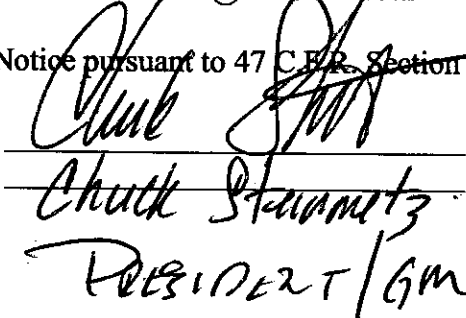 Notice pursuant to 47 C.F.R. Section
Chuck
Chuck Steinmetz
PRESIDENT / GM